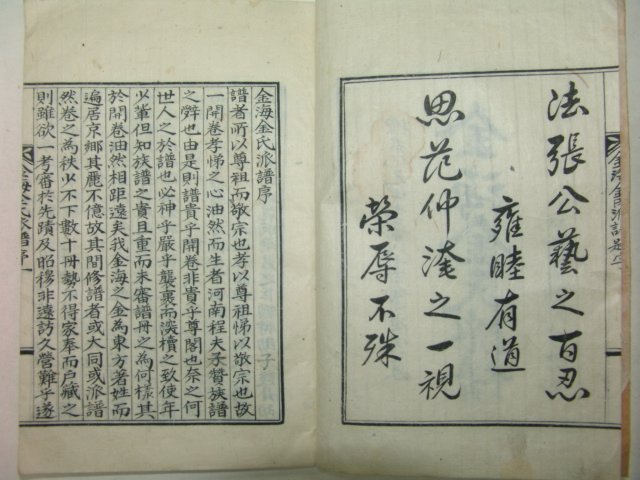 法張公藝之百忍
雍睦有道
思范仲淹之一視
榮辱不殊
金海金氏派譜序
譜者所以尊祖而敬宗也孝以尊祖悌以敬宗也故
一開卷孝悌之心油然而生者河南程夫子贊族譜
之辭也由是則譜貴乎開卷非貴乎尊閣也奈之何
世人之於譜也必神乎嚴乎襲裹而淡櫝之致使年
少輩但知族譜之貴且重而未審譜冊之為何樣其
於開卷油然相距遠矣我金海之金為東方著姓而
遍居京鄉其麗不億故其間修譜者或大同或派譜
然卷之為秩少不下數十冊勢不得家奉而戶藏之
則雖欲一考審於先蹟及昭穆非遠訪久營難乎遂
金海金氏派譜序一